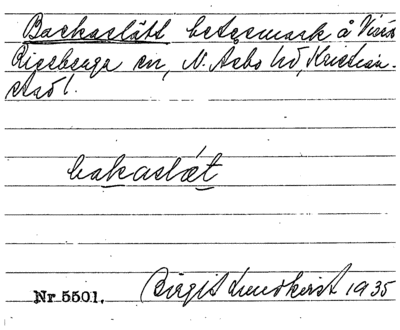 Backaslätt betesmark å
Riseberga sn, N. Åsbo hd, Kristian-
stads l.
bakaslæt
Nr 5501. Birgit Lundkvist 1935